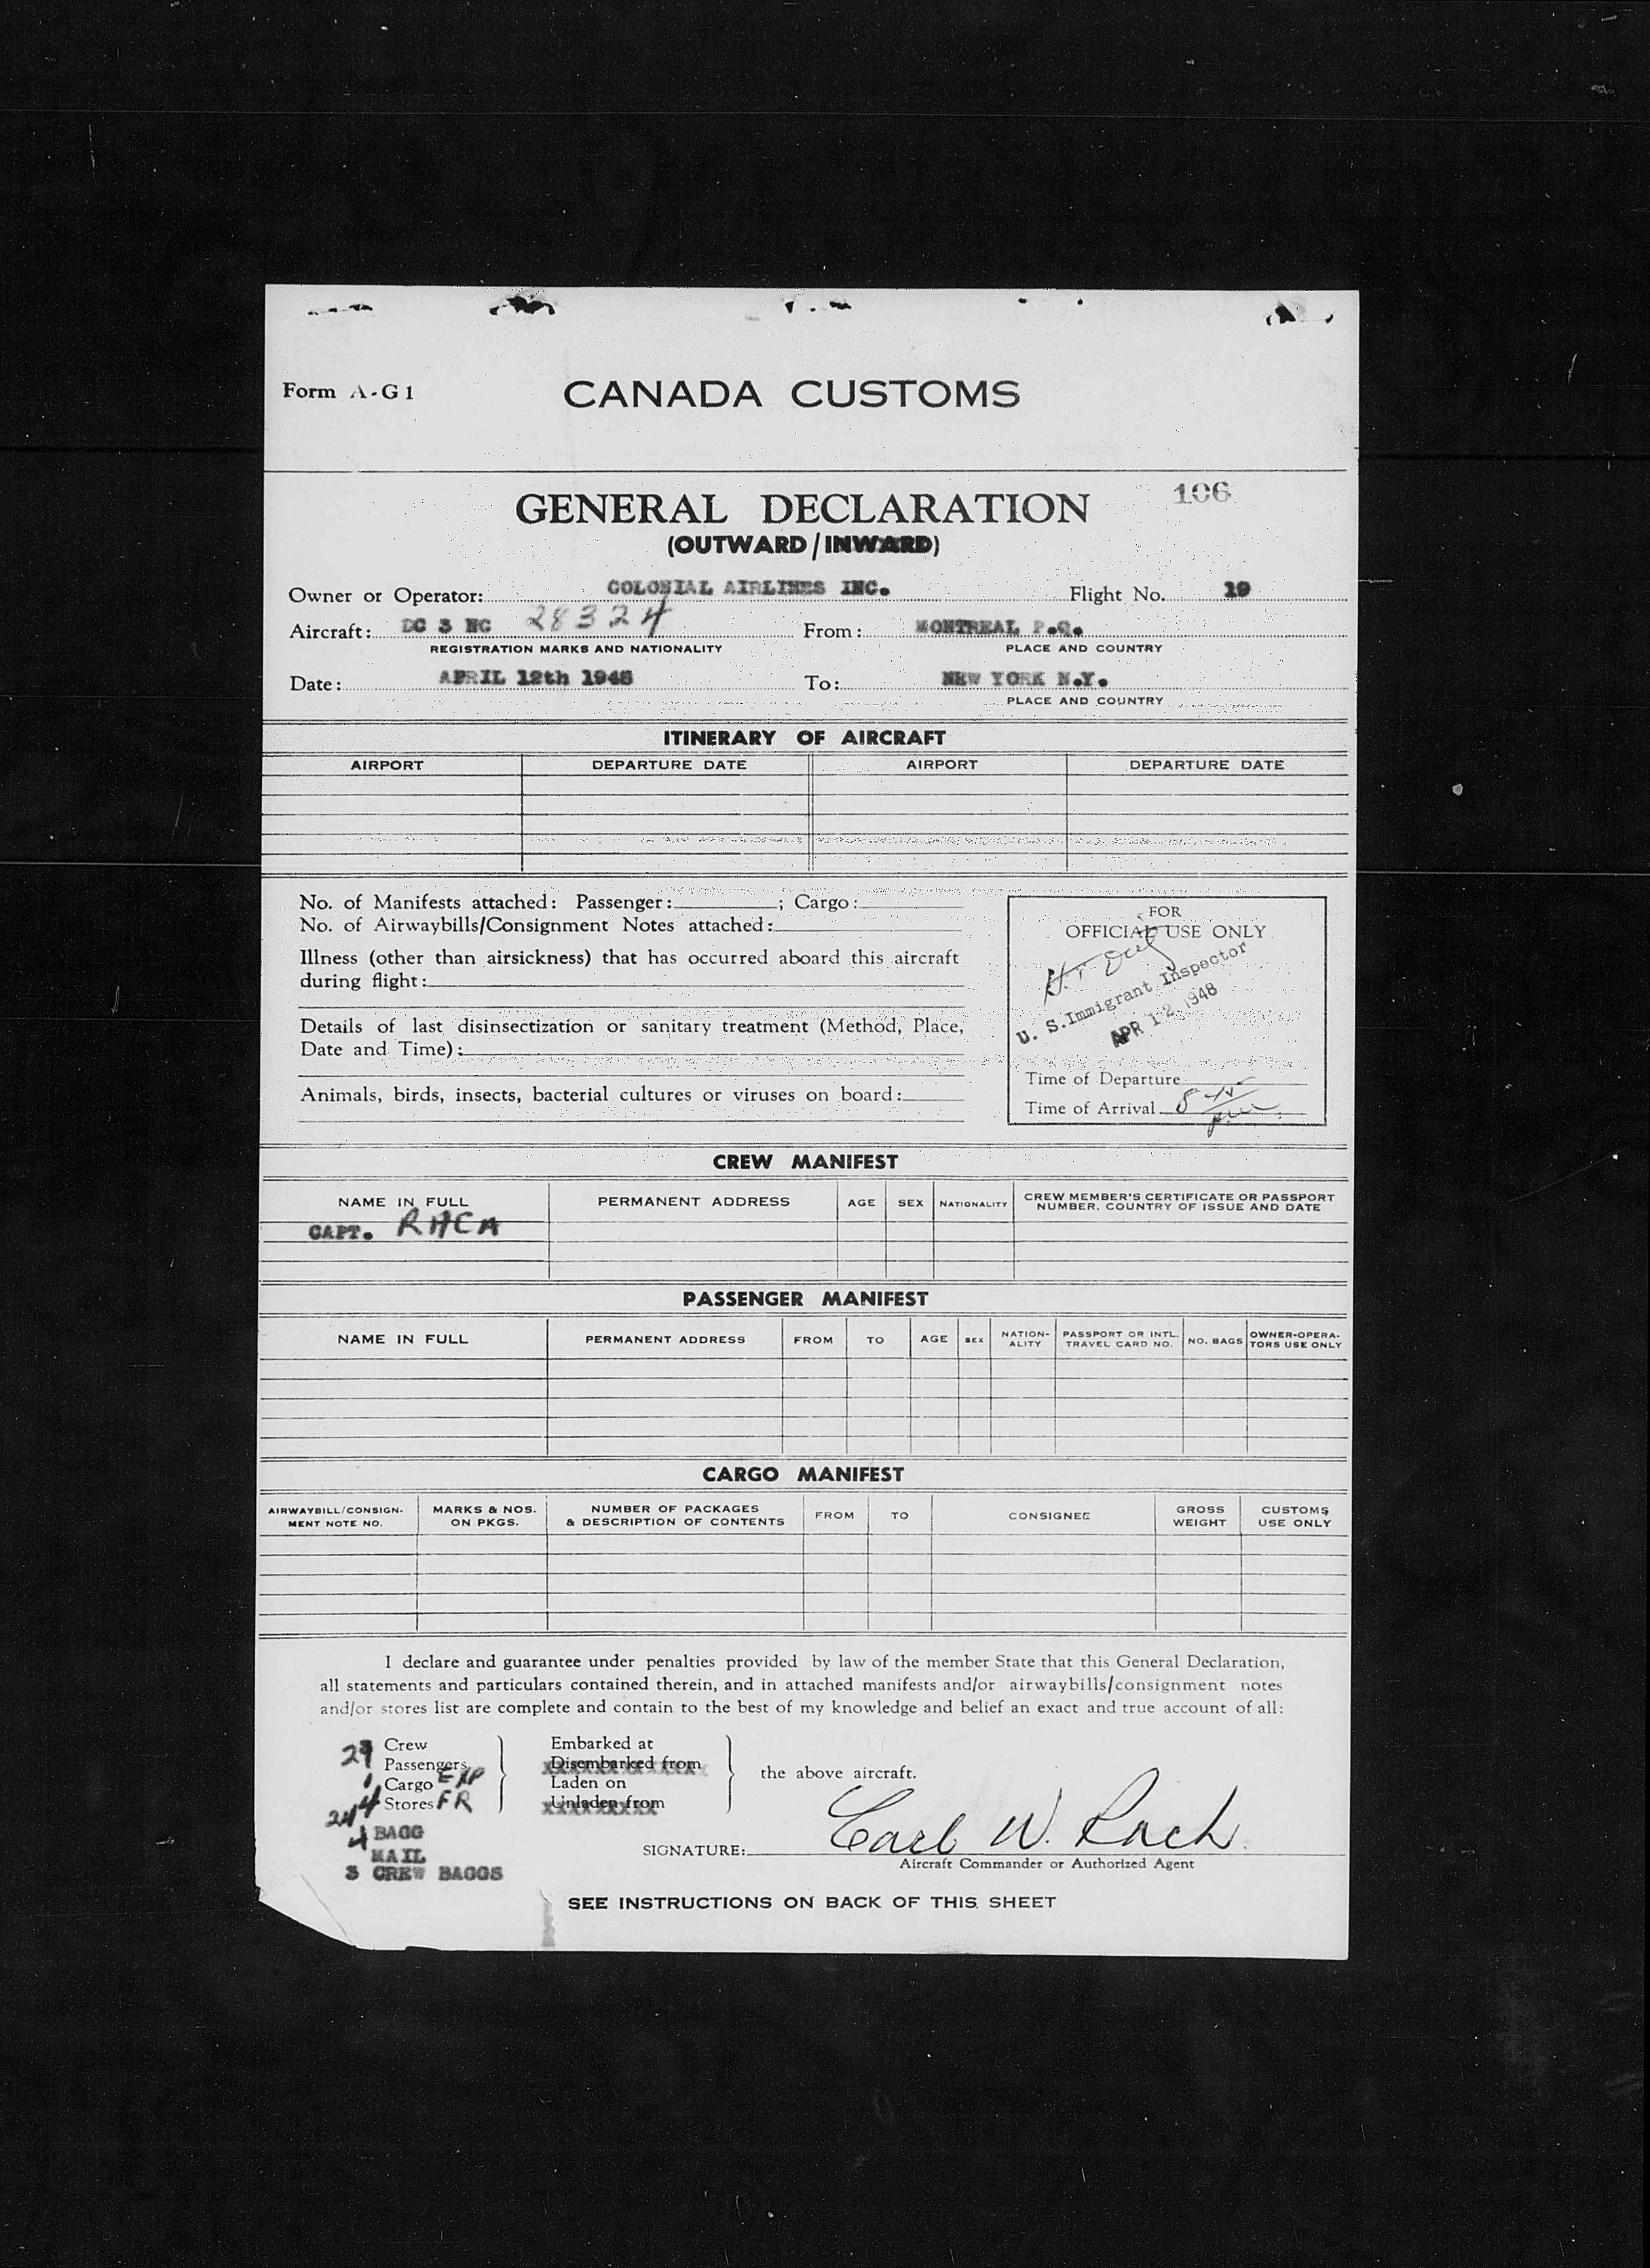 Form A-G1 CANADA CUSTOMS
106
GENERAL DECLARATION
(OUTWARD/INWARD)
Owner or Operator: COLONIAL AIRLINES INC. Flight No. 19
Aircraft: DC 3 NC 28324 From: MONTREAL P.Q.
REGISTRATION MARKS AND NATIONALITY PLACE AND COUNTRY
Date: APRIL 12th 1948 To: NEW YORK N.Y.
PLACE AND COUNTRY
ITINERARY OF AIRCRAFT
AIRPORT DEPARTURE DATE AIRPORT DEPARTURE DATE
No. of Manifests attached: Passenger: ; Cargo:
No. of Airwaybills/Consignment Notes attached:
Illness (other than airsickness) that has occurred aboard this aircraft
during flight:
Details of last disinsectization or sanitary treatment (Method, Place,
Date and Time):
Animals, birds, insects, bacterial cultures or viruses on board:
FOR
OFFICIAL USE ONLY
U. S. Immigrant Inspector
APR 12 1948
Time of Departure
Time of Arrival 8 45 pm
CREW MANIFEST
NAME IN FULL PERMANENT ADDRESS AGE SEX NATIONALITY CREW MEMBER'S CERTIFICATE OR PASSPORT
NUMBER. COUNTRY OF ISSUE AND DATE
CAPT. RACH
PASSENGER MANIFEST
NAME IN FULL PERMANENT ADDRESS FROM TO AGE SEX NATION-
ALITY PASSPORT OR INTL.
TRAVEL CARD NO. NO. BAGS OWNER-OPERA-
TORS USE ONLY
CARGO MANIFEST
AIRWAYBILL/CONSIGN-
MENT NOTE NO. MARKS & NOS.
ON PKGS. NUMBER OF PACKAGES
& DESCRIPTION OF CONTENTS FROM TO CONSIGNEE GROSS
WEIGHT CUSTOMS
USE ONLY
I declare and guarantee under penalties provided by law of the member State that this General Declaration,
all statements and particulars contained therein, and in attached manifests and/or airwaybills/consignment notes
and/or stores list are complete and contain to the best of my knowledge and belief an exact and true account of all:
Crew
Passengers
Cargo EXP
4 Stores FR
24 BAGG
4 MAIL
3 CREW BAGGS
Embarked at
Disembarked from
Laden on
Unladen from
the above aircraft.
SIGNATURE: Carl W. Rach
Aircraft Commander or Authorized Agent
SEE INSTRUCTIONS ON BACK OF THIS SHEET